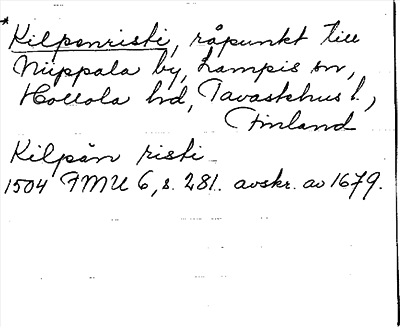 *Kilpenristi, råpunkt till
Niippala by, Lampis sn,
Hollola hd, Tavastehus l.,
Finland
Kilpän risti
1504 FMU 6, s. 281. avskr. av 1679.